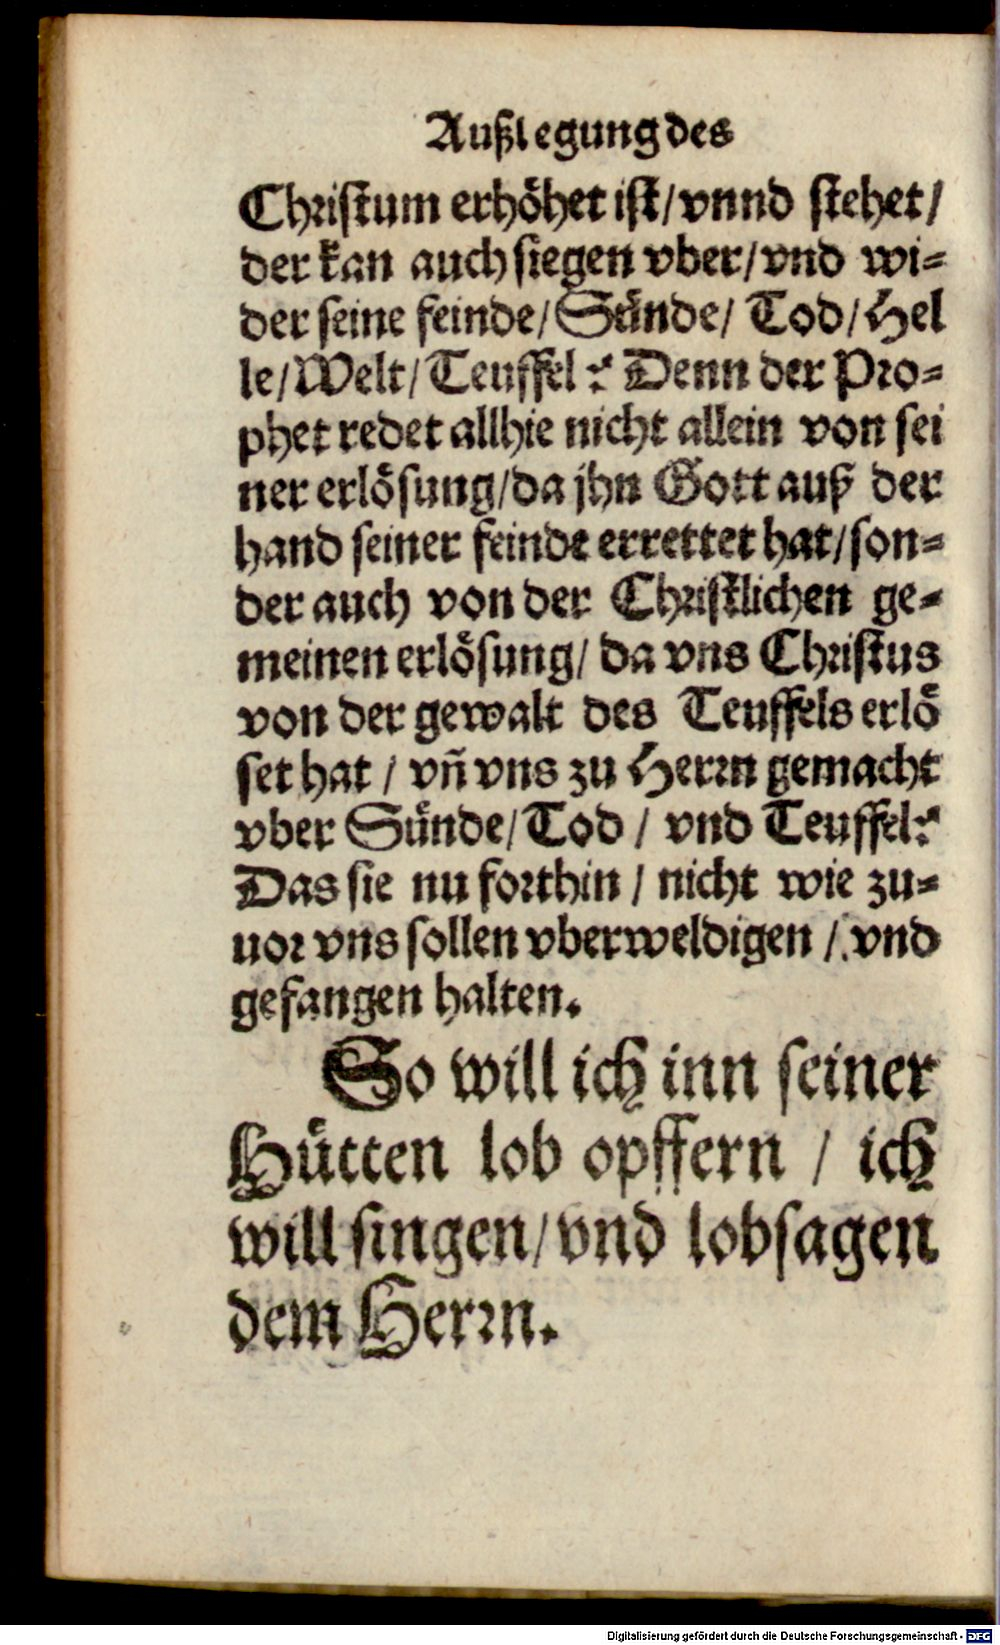 Außlegung des
Christum erhöhet ist/ vnnd stehet/
der kan auch siegen vber/ vnd wi=
der seine feinde/ Sünde/ Tod/ Hel
le/ Welt/ Teuffel ꝛc Denn der Pro=
phet redet allhie nicht allein von sei
ner erlösung/ da jhn Gott auß der
hand seiner feinde errettet hat/ son=
der auch von der Christlichen ge=
meinen erlösung/ da vns Christus
von der gewalt des Teuffels erlö
set hat / vn̄ vns zu Herrn gemacht
vber Sünde/ Tod / vnd Teuffel ꝛc
Das sie nu forthin / nicht wie zu=
uor vns sollen vberweldigen / vnd
gefangen halten.
So will ich inn seiner
Hütten lob opffern / ich
will singen/ vnd lobsagen
dem Herrn.
Digitalisierung gefördert durch die Deutsche Forschungsgemeinschaft - DFG